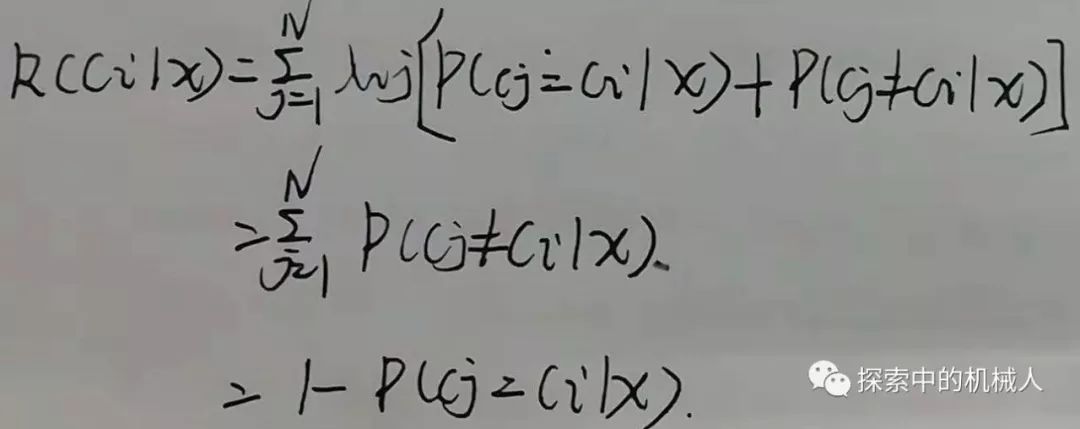 R(Ci|x)=∑_{j=1}^{N} λij[P(Cj=Ci|x)+P(Cj≠Ci|x)]
=∑_{j=1}^{N} P(Cj≠Ci|x).
= 1-P(Cj=Ci|x).
探索中的机械人